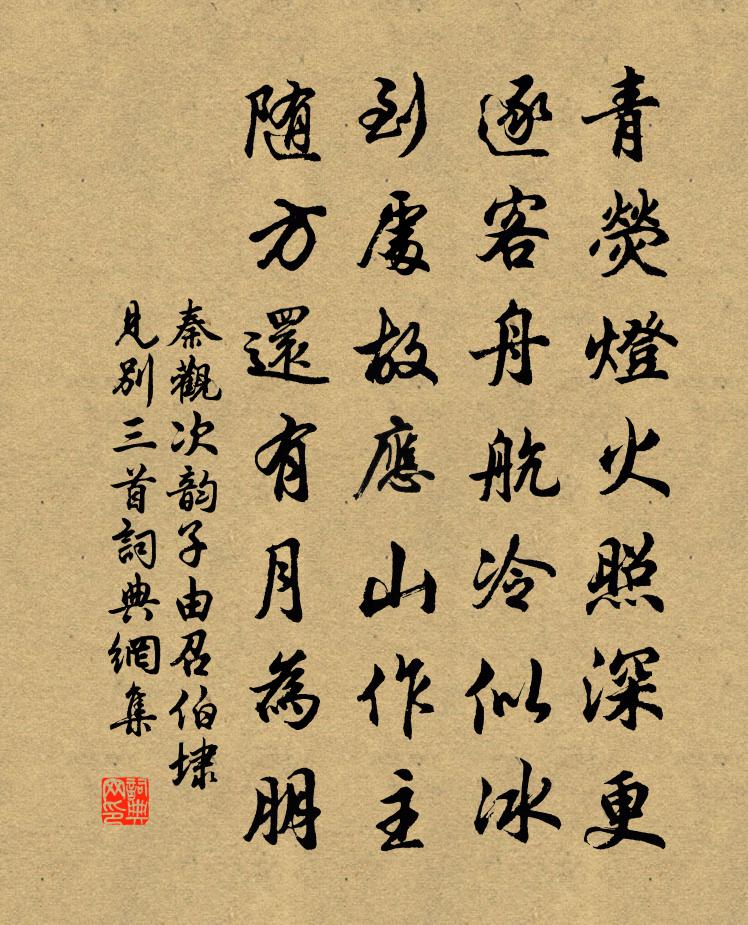 青熒燈火照深更
逐客舟航冷似冰
到處故應山作主
随方還有月為朋
秦觀次韵子由召伯埭
見別三首詞典網集
詞典网印